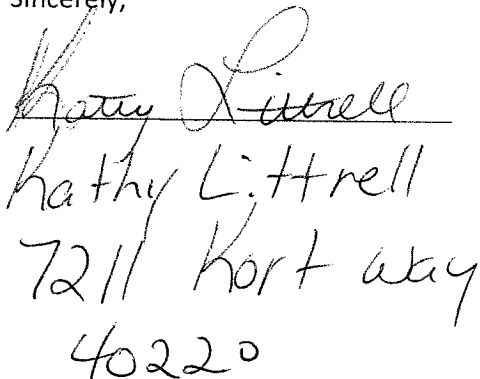 Sincerely,
Kathy Littrell
Kathy Littrell
7211 Kort Way
40220